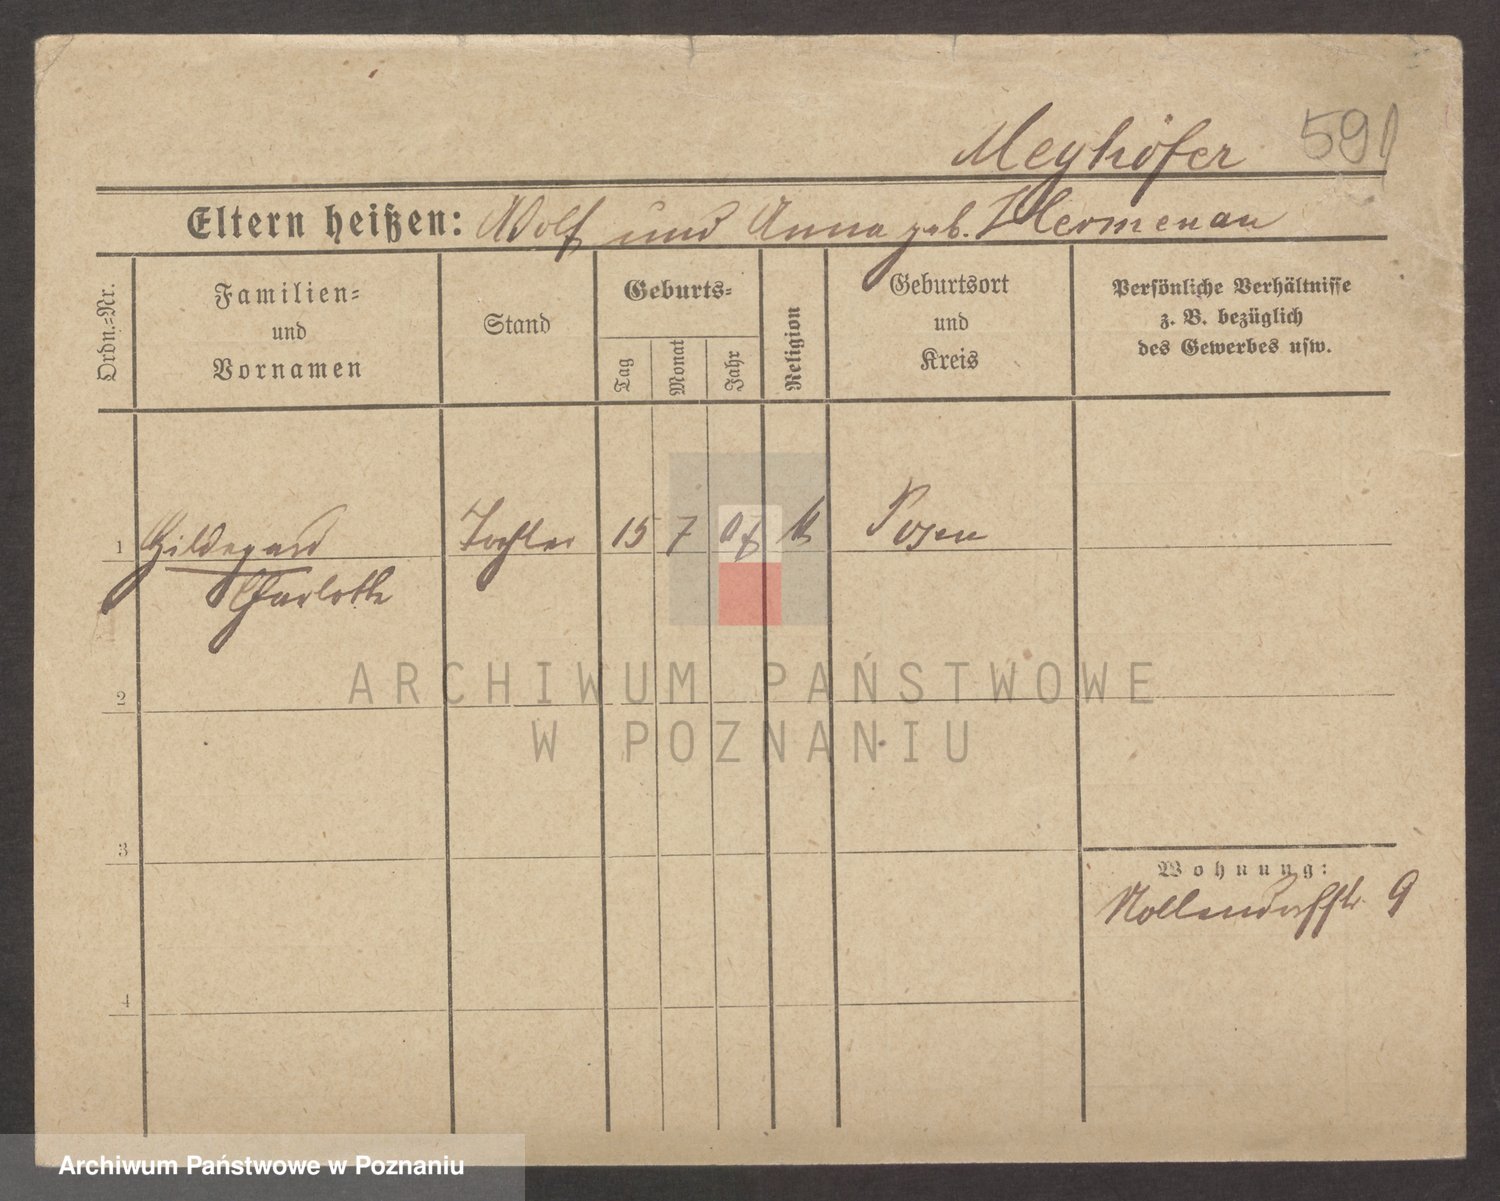 Meyhöfer 591
Eltern heißen: Wolf und Anna geb. Hermenau
Ordn.-Nr.
Familien-
und
Vornamen
Stand
Geburts-
Tag
Monat
Jahr
Religion
Geburtsort
und
Kreis
Persönliche Verhältnisse
z. B. bezüglich
des Gewerbes usw.
1 Hildegard Tochter 15 7 07 Posen
Charlotte
2
3
4
Wohnung:
Nollendorfstr. 9
ARCHIWUM PAŃSTWOWE
W POZNANIU
Archiwum Państwowe w Poznaniu